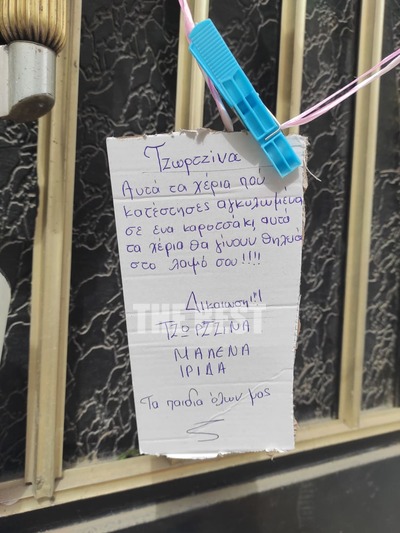 Τζωρτζίνα
Αυτά τα χέρια που
κατέστησες αγκυλωμένα
σε ένα καροτσάκι, αυτά
τα χέρια θα γίνουν θηλιά
στο λαιμό σου!!!!
Δικαίωση!!!
THE BEST
ΤΖΩΡΤΖΙΝΑ
ΜΑΛΕΝΑ
ΙΡΙΔΑ
Τα παιδιά όλων μας